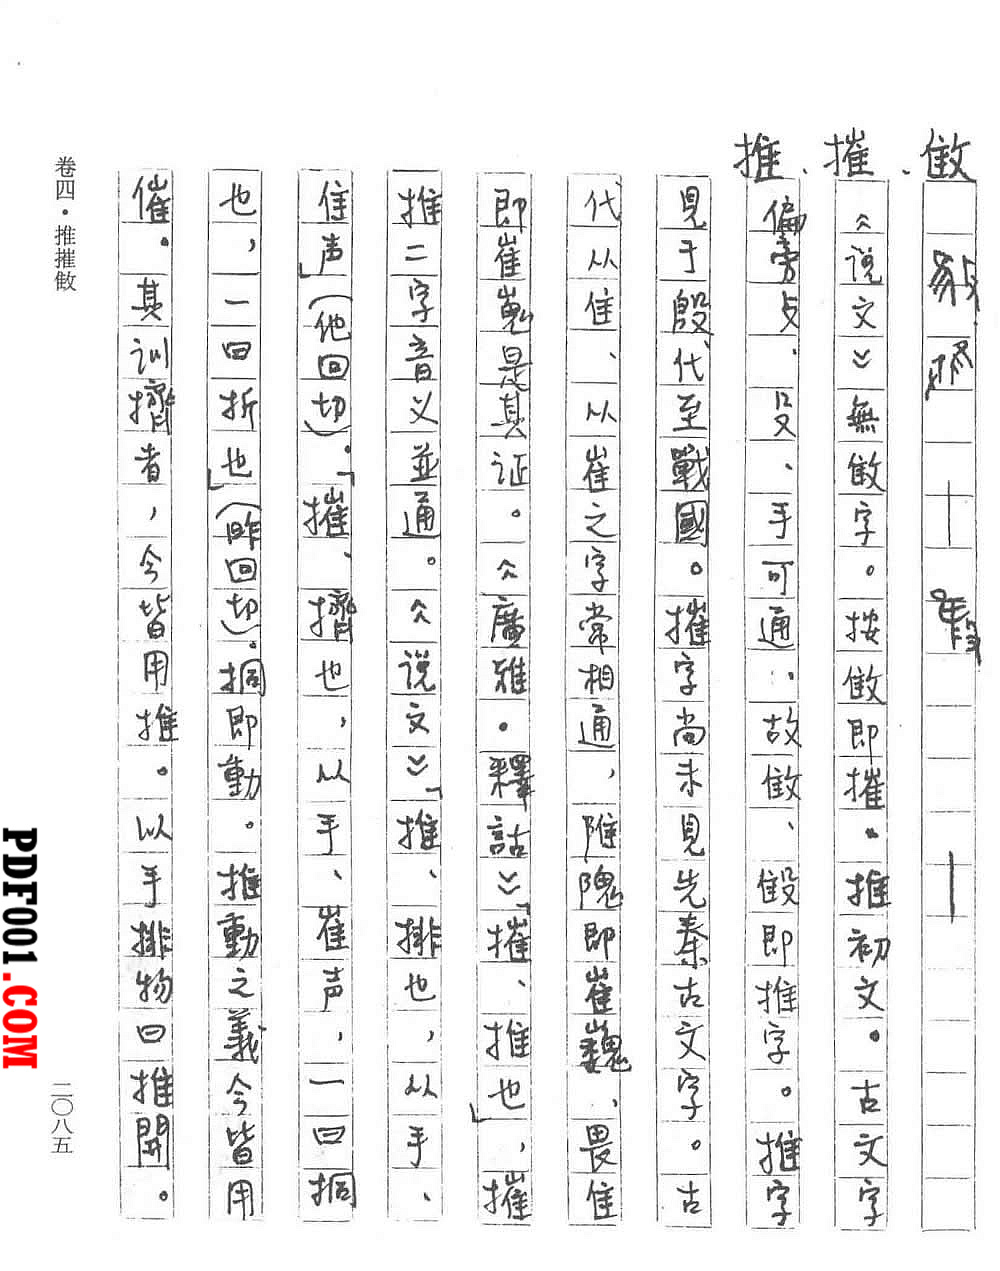 推、摧、㪣
《说文》無㪣字。按㪣即摧。推初文。古文字
偏旁攴、殳、手可通，故㪣、即推字。推字
見于殷代至戰國。摧字尚未見先秦古文字。古
代从隹、从崔之字常相通，陮隗即崔巍、畏隹
即崔嵬是其证。《廣雅·釋詁》「摧、推也」，摧
推二字音义並通。《说文》「推、排也，从手、
隹声」（他回切）。「摧、擠也，从手、崔声，一曰挏
也，一曰折也」（昨回切）。挏即動。推動之義今皆用
催。其训擠者，今皆用推。以手排物曰推開。
卷四·推摧㪣
二〇八五
PDF001.COM